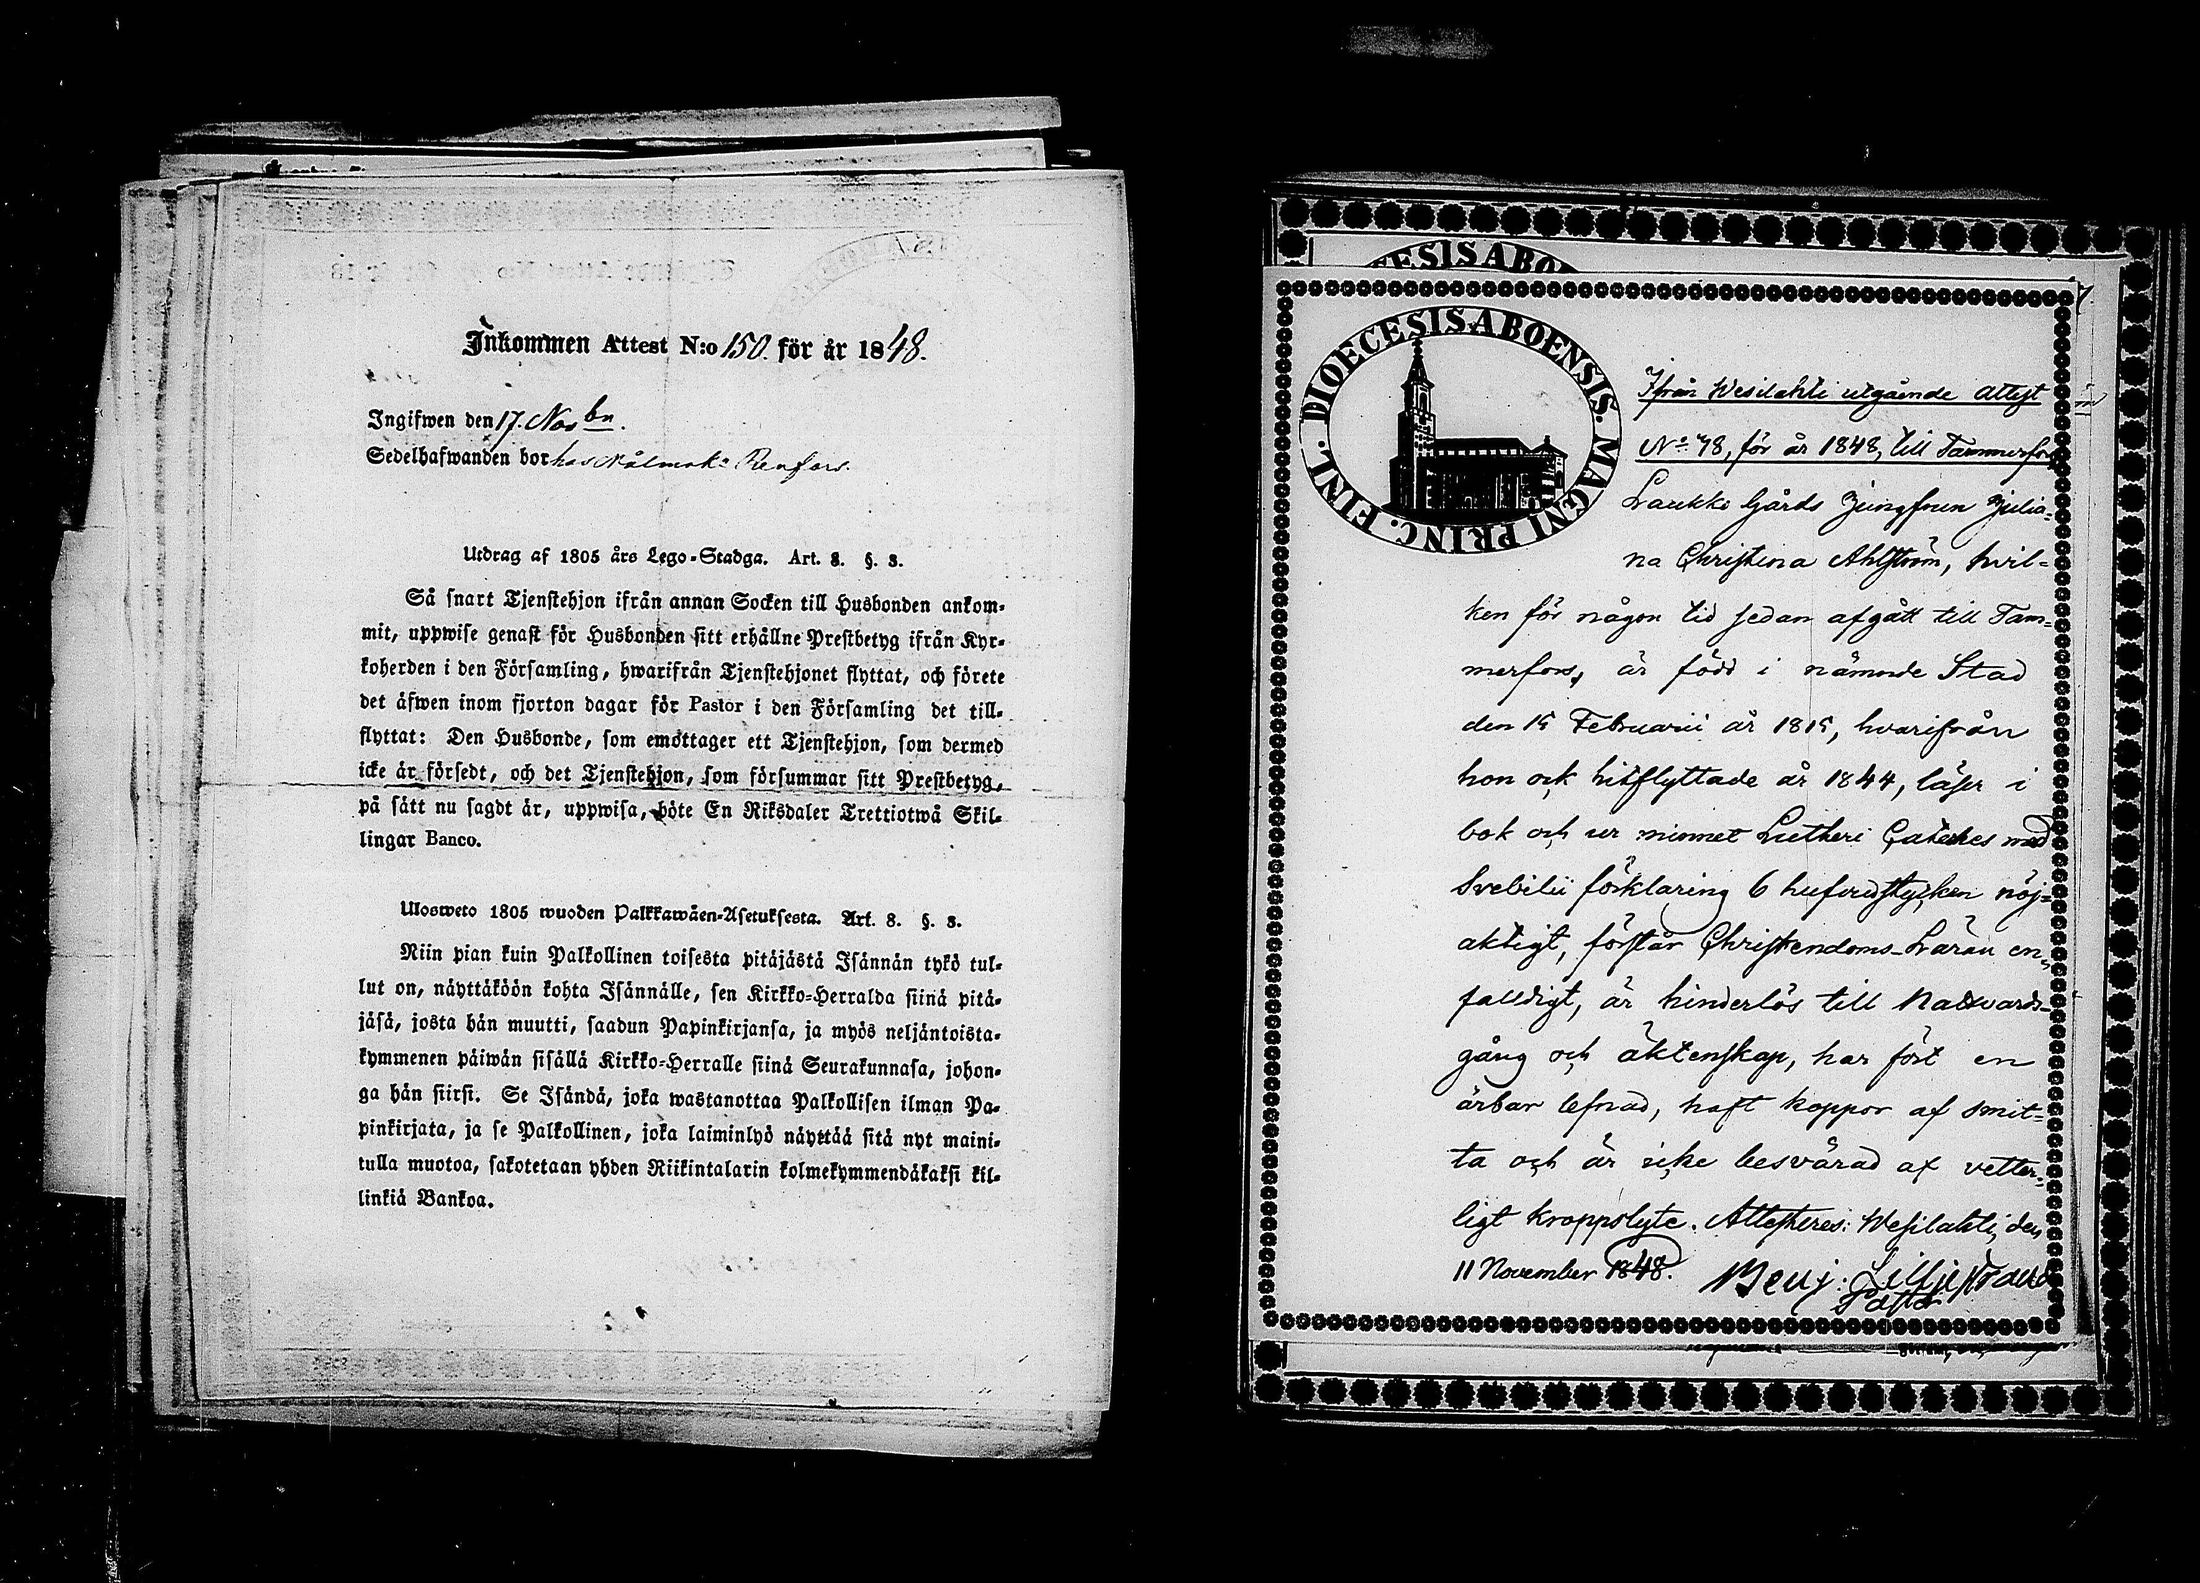 Inkommen Attest N:o 150. för år 1848.
Ingifwen den 17. Novbr.
Sedelhafwanden bor hos Målmak:
Utdrag af 1805 års Lego-Stadga. Art. 8. §. 3.
Så snart Tjenstehjon ifrån annan Socken till Husbonden ankom-
mit, uppwise genast för Husbonden sitt erhållne Prestbetyg ifrån Kyr-
koherden i den Församling, hwarifrån Tjenstehjonet flyttat, och förete
det äfwen inom fjorton dagar för Pastor i den Församling det till-
flyttat: Den Husbonde, som emottager ett Tjenstehjon, som dermed
icke är försedt, och det Tjenstehjon, som försummar sitt Prestbetyg,
på sätt nu sagdt är, uppwisa, böte En Riksdaler Trettiotwå Skil-
lingar Banco.
Ulosweto 1805 wuoden Palkkawäen-Asetuksesta. Art. 8. §. 3.
Niin pian kuin Palkollinen toisesta pitäjästä Isännän tykö tul-
lut on, näyttäköön kohta Isännälle, sen Kirkko-Herralda siinä pitä-
jäsä, josta hän muutti, saadun Papinkirjansa, ja myös neljäntoista-
kymmenen päiwän sisällä Kirkko-Herralle siinä Seurakunnasa, johon-
ga hän siirsi. Se Isändä, joka wastanottaa Palkollisen ilman Pa-
pinkirjata, ja se Palkollinen, joka laiminlyö näyttää sitä nyt maini-
tulla muotoa, sakotetaan yhden Riikintalarin kolmekymmendäkaksi kil-
linkiä Bankoa.
DIOECESIS ABO
DIOECESIS ABOENSIS. MAGNI PRINC. FINL.
Ifrån Wesilahti utgående Attest
No 78, för år 1848, till Tammerfors
Laukko Gårds Jungfrun Julia-
na Christina Ahlström, hvil-
ken för någon tid sedan afgått till Tam-
merfors, är född i nämnde Stad
den 15 Februarii år 1815, hvarifrån
hon ock hitflyttade år 1844, läser i
bok och ur minnet Lutheri Cateches med
Svebilii förklaring 6 hufvudstycken nöj-
aktigt, förstår Christendoms-Läran en-
falldigt, är hinderlös till Nattvards-
gång och äktenskap, har fört en
ärbar lefnad, haft koppor af smit-
ta och är icke besvärad af vetter-
ligt kroppslyte. Attesteres: Wesilahti, den
11 November 1848. Benj: Lilljestrand
Pastor